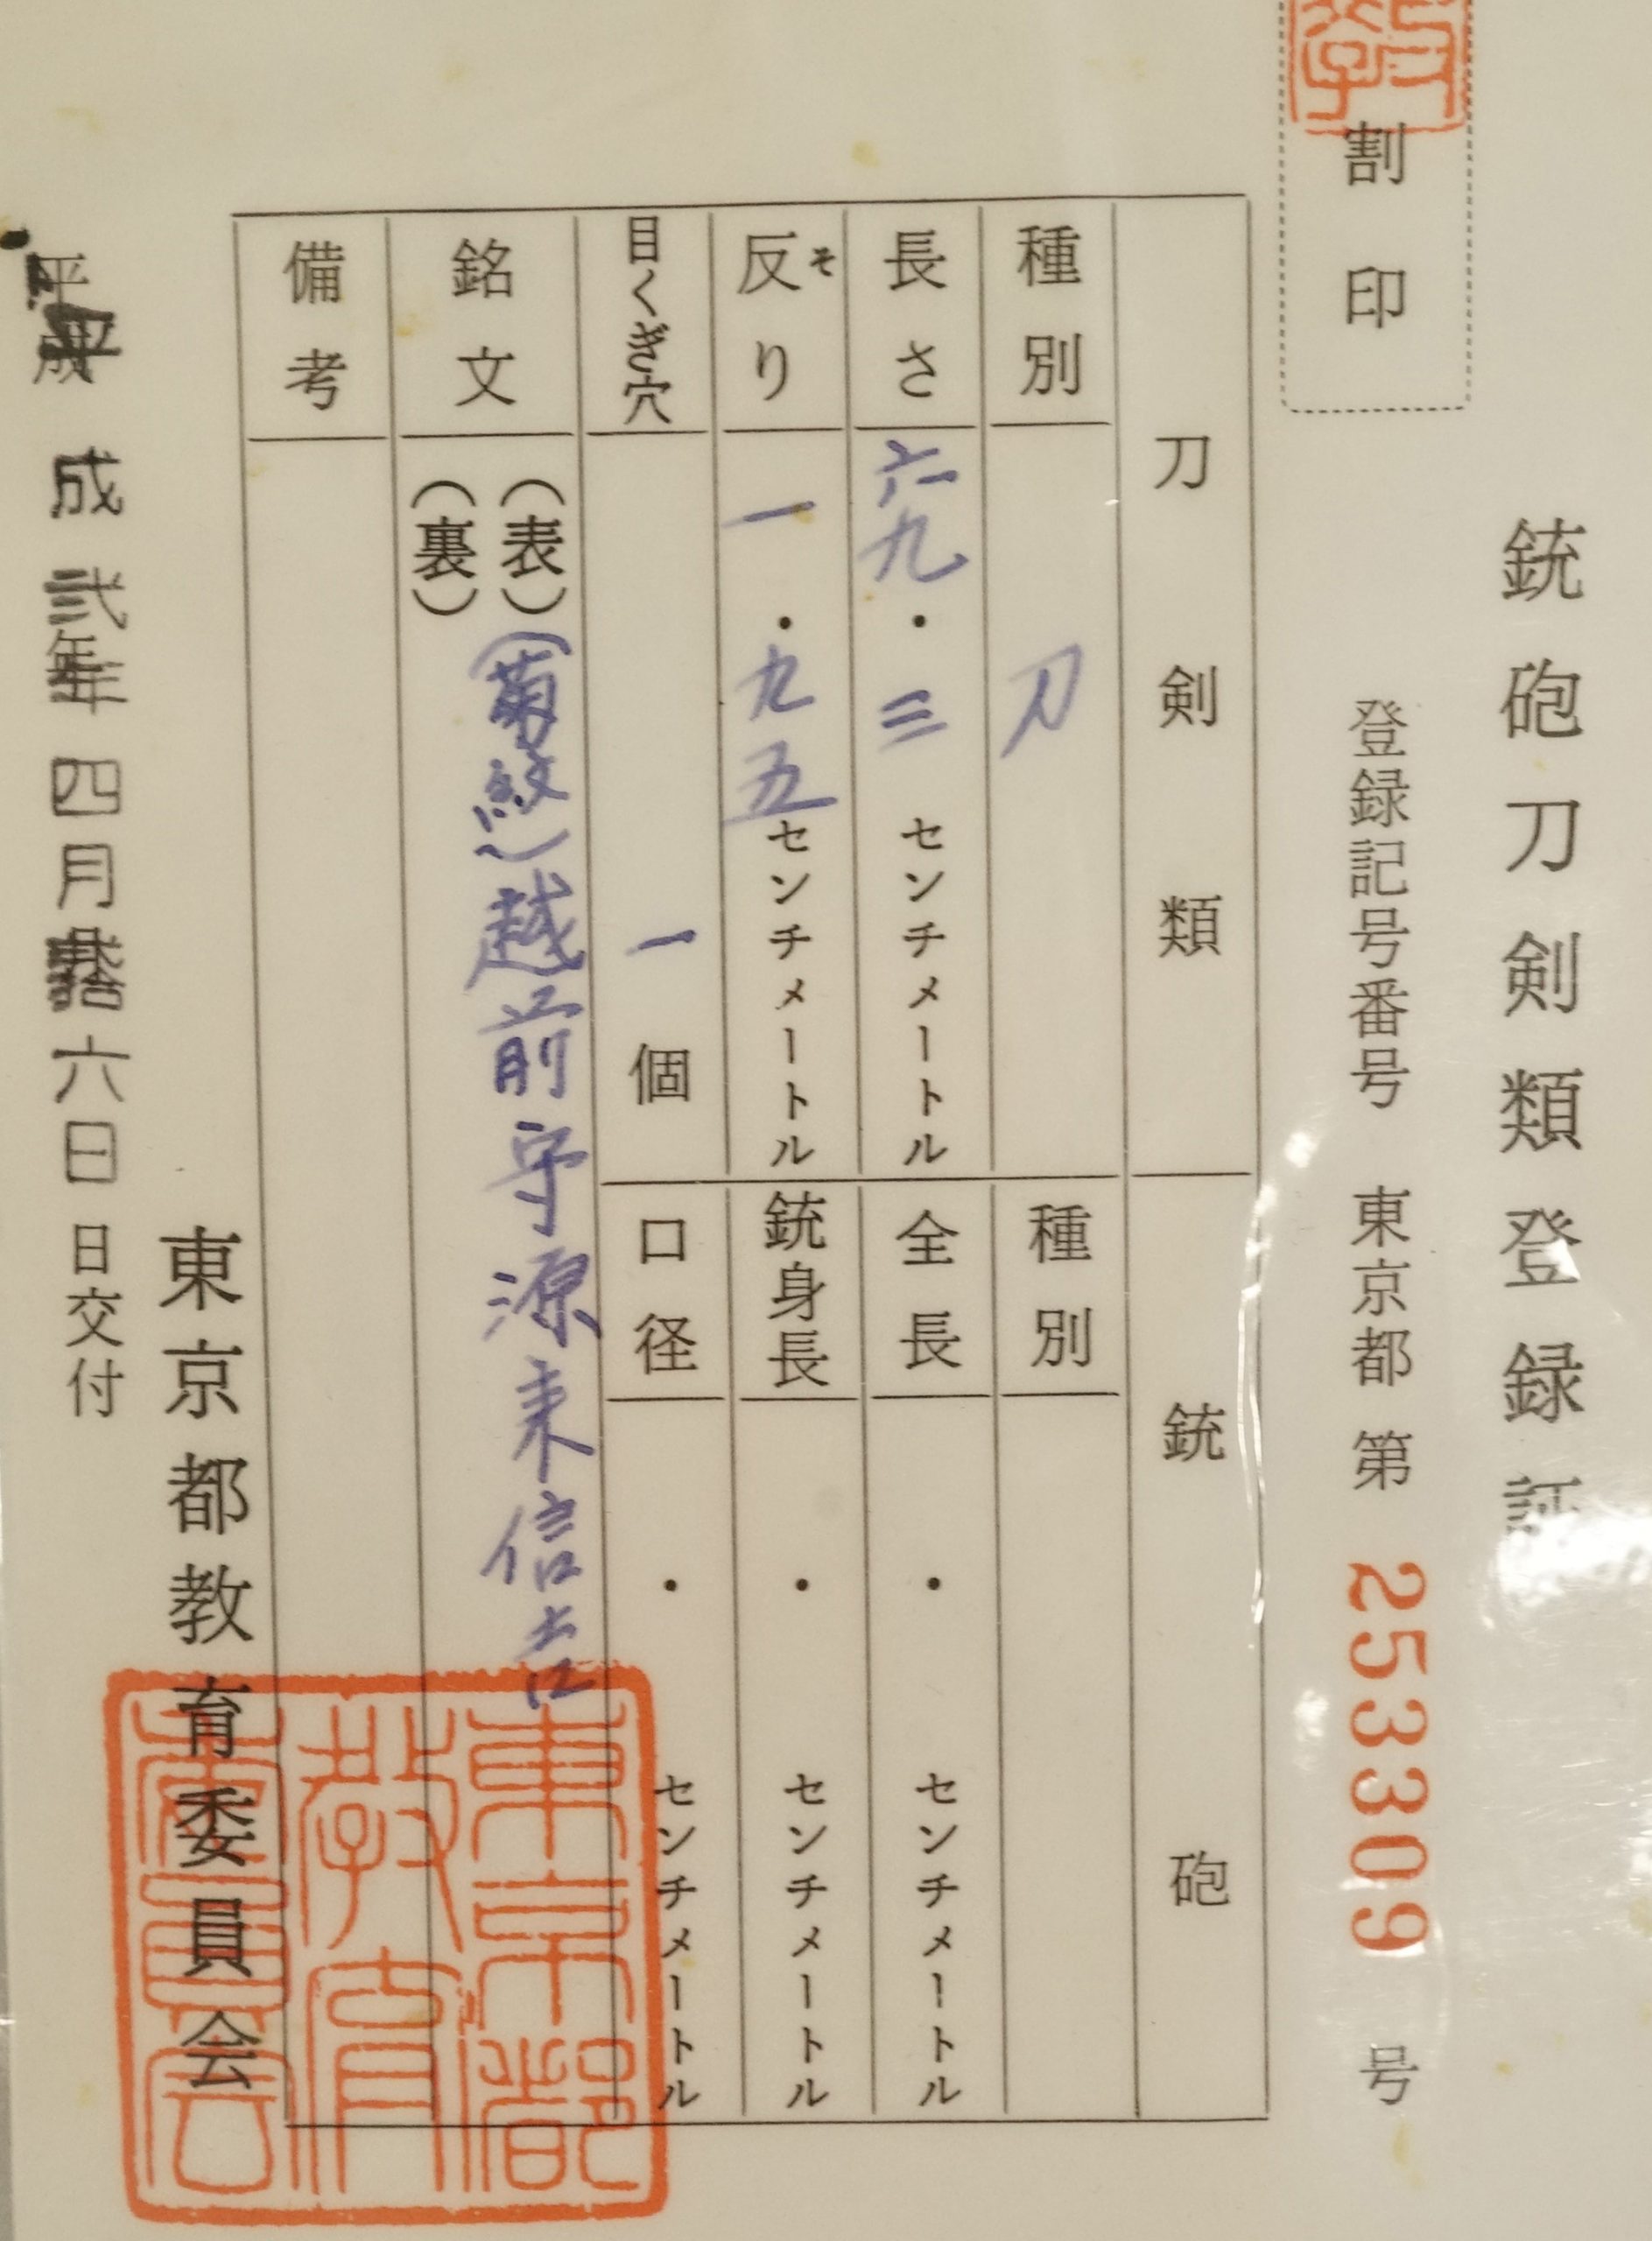 銃砲刀剣類登録証
割印
登録記号番号 東京都 第 253309 号
刀剣類
銃砲
種別 刀
種別
長さ 六九・三 センチメートル
全長 ・ センチメートル
反り そ 一・九五 センチメートル
銃身長 ・ センチメートル
目くぎ穴 一 個
口径 ・ センチメートル
銘文 (表) (菊紋)越前守源来信吉
(裏)
備考
東京都教育委員会
平成弐年四月拾六日日交付
東京都教育委員会